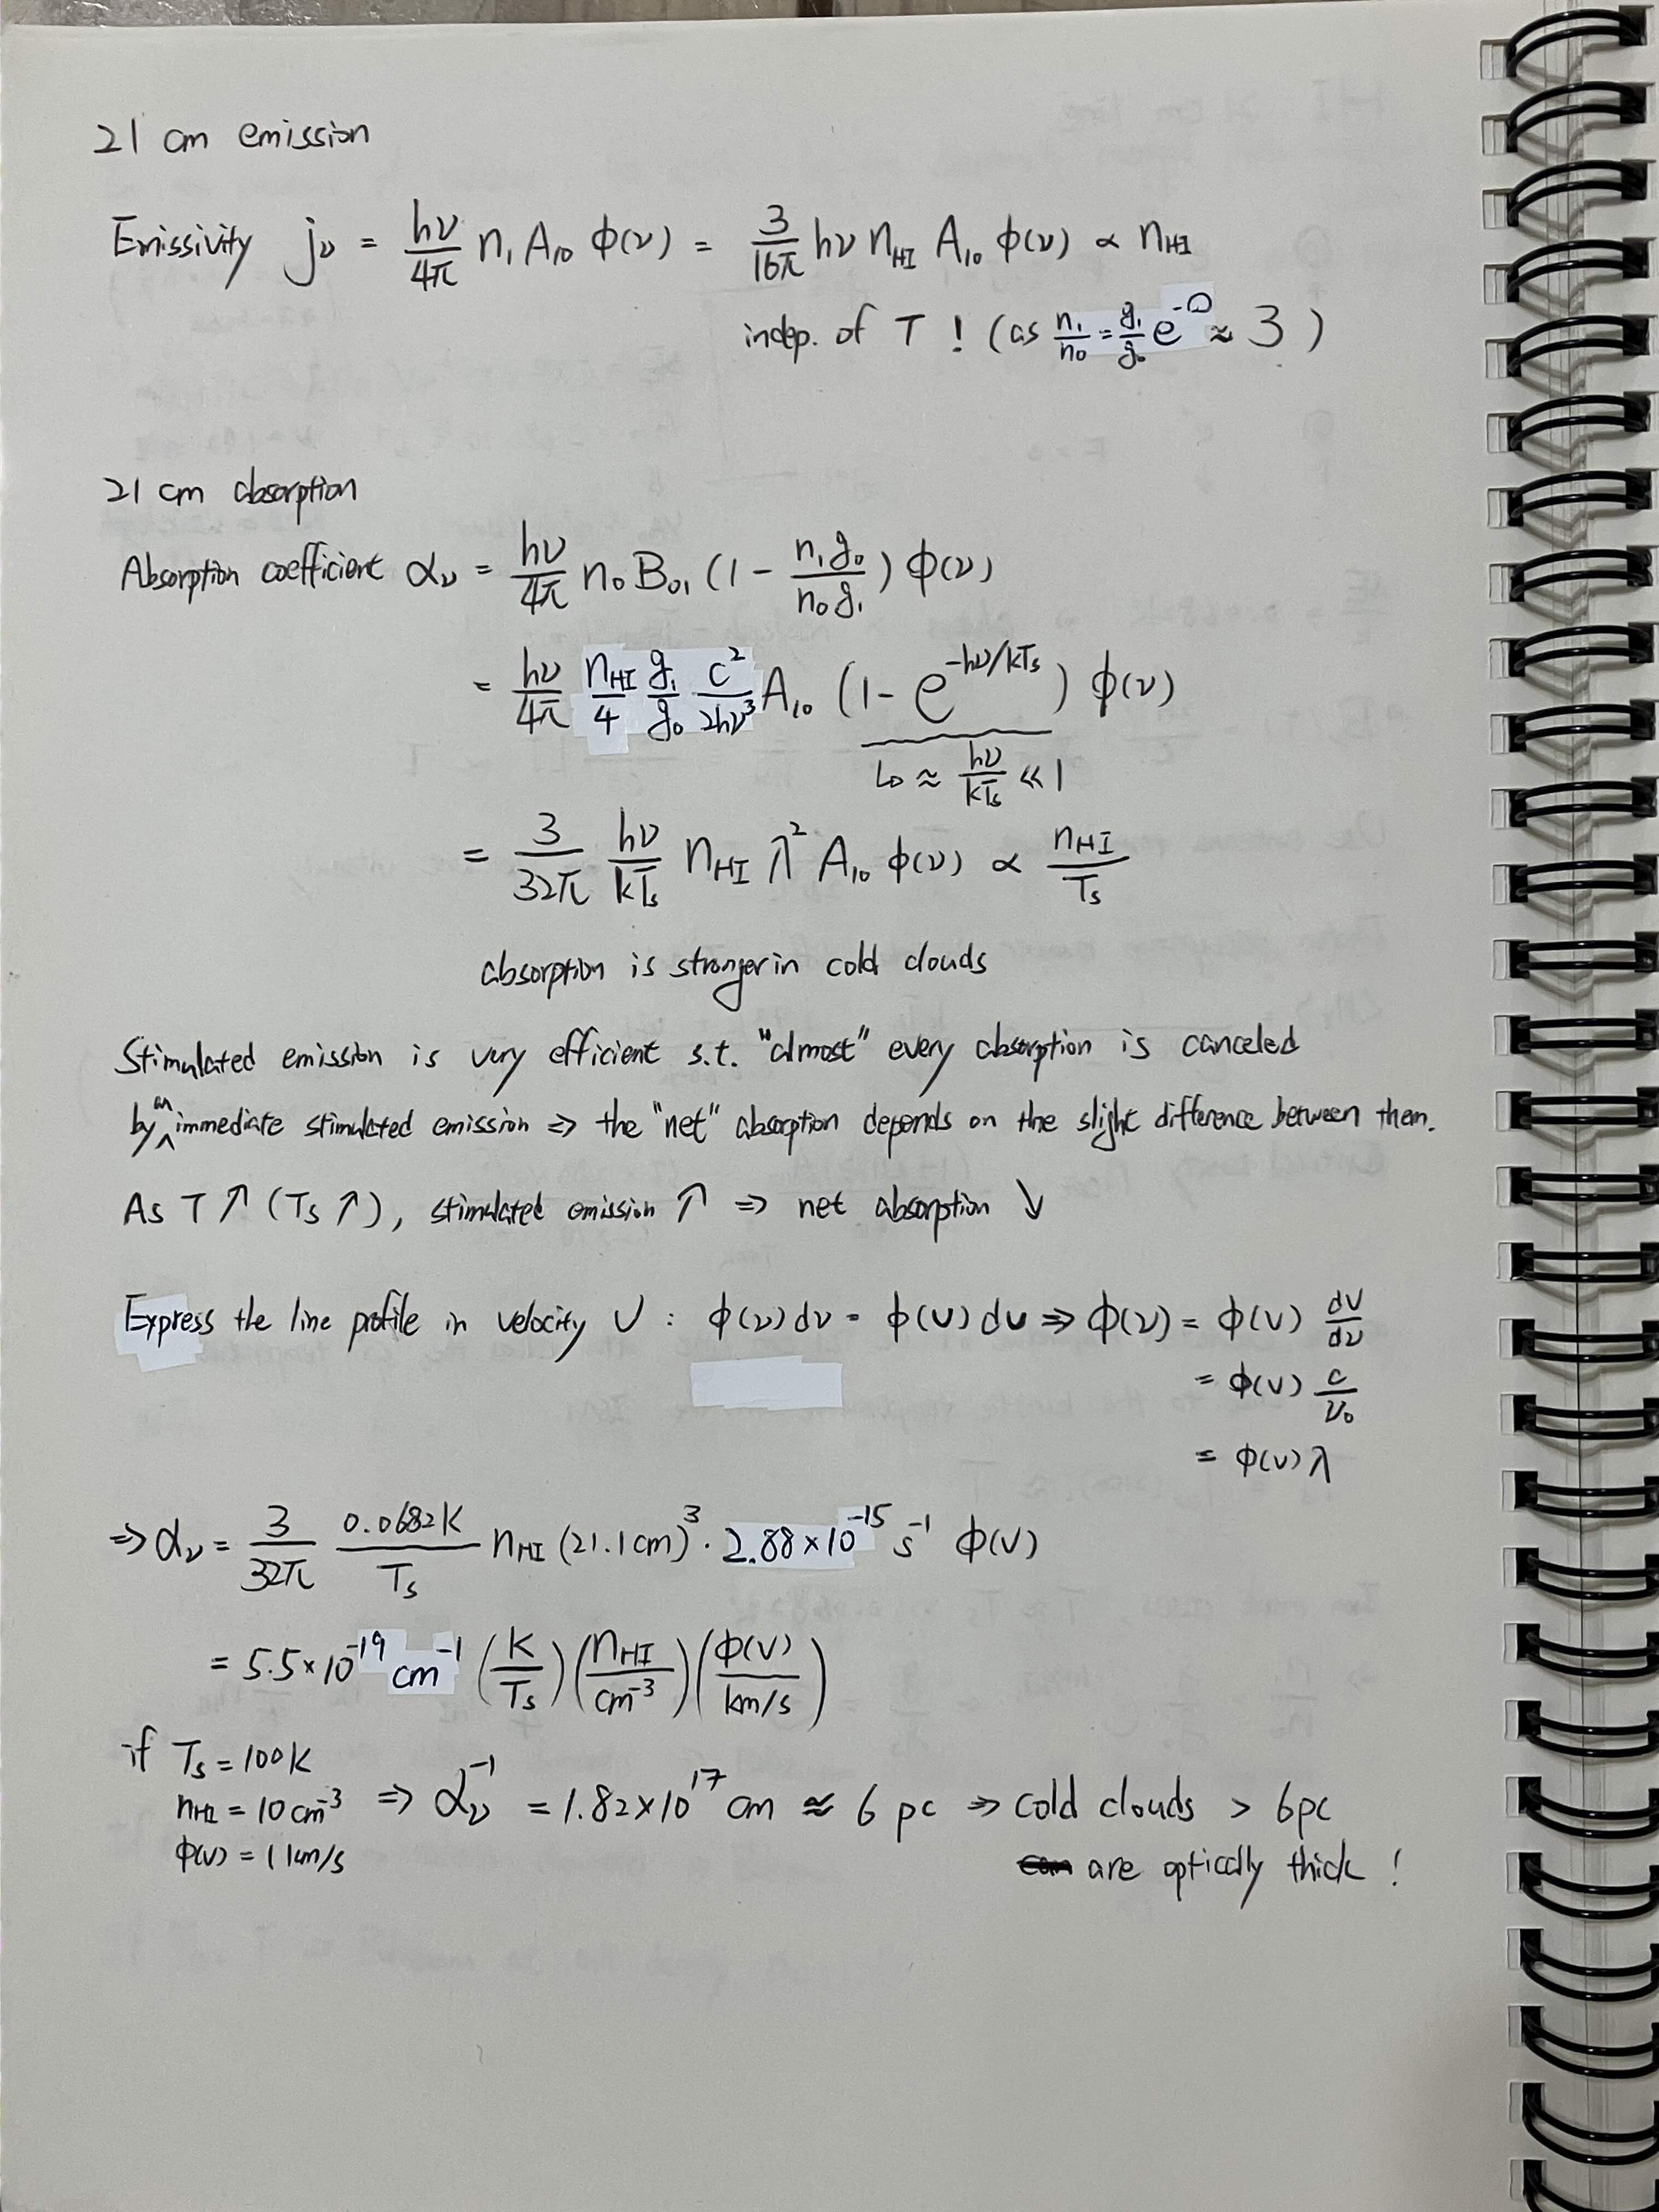 21 cm emission
Emissivity jν = hν/4π n₁ A₁₀ ϕ(ν) = 3/16π hν n_HI A₁₀ ϕ(ν) ∝ n_HI
indep. of T ! (as n₁/n₀ = g₁/g₀ e^-0 ≈ 3 )
21 cm absorption
Absorption coefficient αν = hν/4π n₀ B₀₁ (1 - n₁g₀/n₀g₁) ϕ(ν)
= hν/4π n_HI/4 g₁/g₀ c²/2hν³ A₁₀ (1 - e^-hν/kTs) ϕ(ν)
↳ ≈ hν/kTs ≪ 1
= 3/32π hν/kTs n_HI λ² A₁₀ ϕ(ν) ∝ n_HI/Ts
absorption is stronger in cold clouds
Stimulated emission is very efficient s.t. "almost" every absorption is canceled
by an immediate stimulated emission ⇒ the "net" absorption depends on the slight difference between them.
As T ↗ (Ts ↗), stimulated emission ↗ ⇒ net absorption ↘
Express the line profile in velocity v : ϕ(ν) dν = ϕ(v) dv ⇒ ϕ(ν) = ϕ(v) dv/dν
= ϕ(v) c/ν₀
= ϕ(v) λ
⇒ αν = 3/32π 0.0682K/Ts n_HI (21.1 cm)³ · 2.88×10^-15 s^-1 ϕ(v)
= 5.5×10^-19 cm^-1 (K/Ts) (n_HI/cm^-3) (ϕ(v)/km/s)
if Ts = 100K
n_HI = 10 cm^-3 ⇒ αν^-1 = 1.82×10^17 cm ≈ 6 pc ⇒ cold clouds > 6pc
ϕ(v) = 1 km/s
are optically thick !